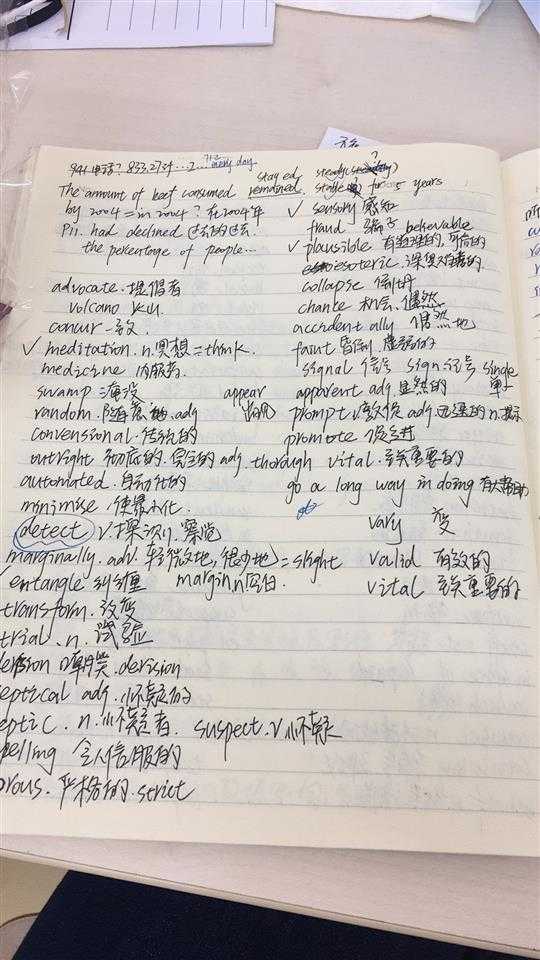 941 电话? 833.27对...2... every day
stayed steady
The amount of beef consumed remained stable for 5 years
by 2004 = in 2004? 在2004年
P11. had declined 过去的过去
the percentage of people...
✓ sensory 感知
fraud 骗子 believable
✓ plausible 有道理的, 可信的
esoteric. 深奥难懂的
advocate. 提倡者
collapse 倒坍
volcano 火山
chance 机会. 偶然
concur 一致
accident ally 偶然地
✓ meditation. n. 冥想 = think.
faint 昏倒 虚弱的
medicine 内服药.
signal 信号 sign 记号 single 单一
swamp 淹没
appear 出现
apparent adj. 显然的
random. 随意的. adj
prompt v. 敦促 adj 迅速的 n. 提示
convensional. 传统的
promote 促进
outright 彻底的. 完全的 adj. thorough
vital. 至关重要的
automated. 自动化的
go a long way in doing 有大帮助
minimise. 使最小化.
detect v. 探测, 察觉
vary 变
marginally. adv. 轻微地, 很少地 = slight
valid 有效的
entangle 纠缠
margin n 空白.
vital 至关重要的
transform. 改变
trial. n. 试验
嘲笑. derision
eptical adj. 怀疑的
eptic. n. 怀疑者. suspect. v 怀疑
pelling 令人信服的
orous. 严格的. strict